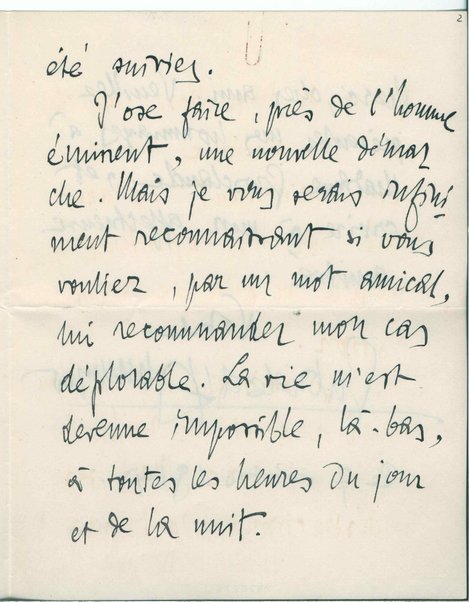 2
été suivies.
J'ose faire, près de l'homme
éminent, une nouvelle démar
che. Mais je vous serais infini
ment reconnaissant si vous
vouliez, par un mot amical,
lui recommander mon cas
déplorable. La vie m'est
devenue impossible, là-bas,
à toutes les heures du jour
et de la nuit.